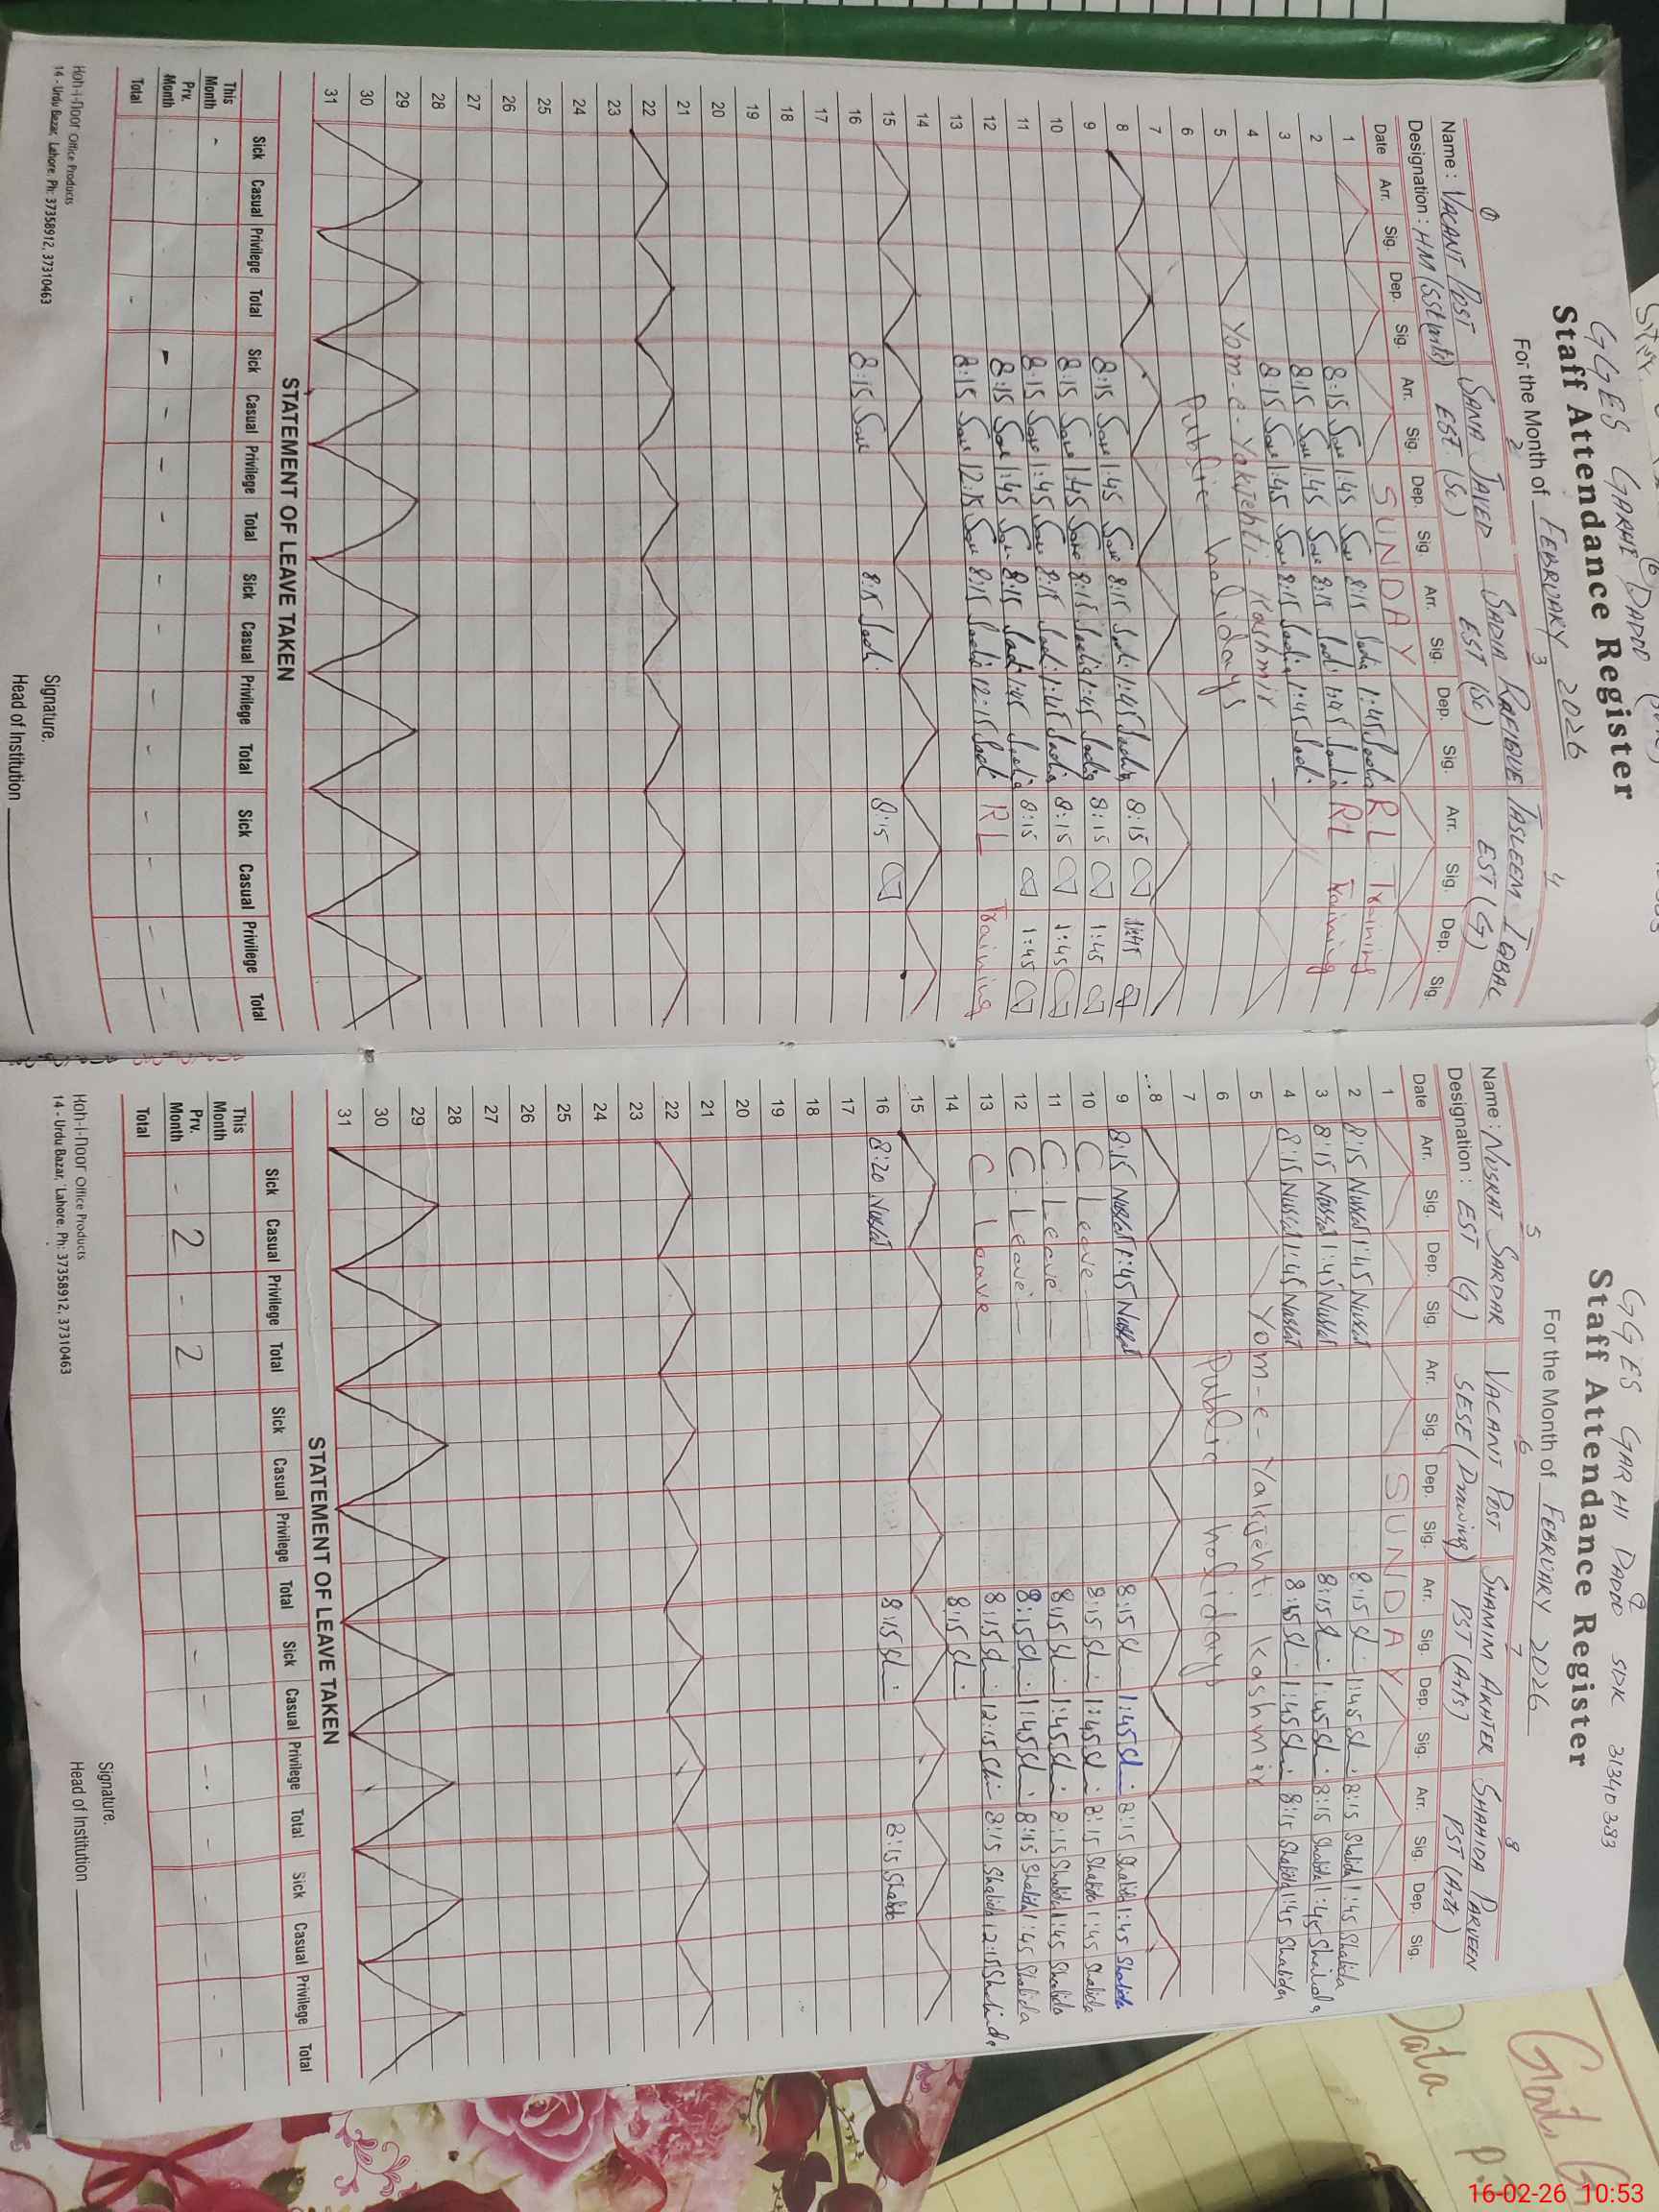 GGES GARHI DADOO
Staff Attendance Register
For the Month of FEBRUARY 2026
1 2 3 4
Name: VACANT POST SANA JAVED SADIA RAFIQUE TASLEEM IQBAL
Designation: HM (SST EST (Sc) EST (Sc) EST (G)
Date Arr. Sig. Dep. Sig. Arr. Sig. Dep. Sig. Arr. Sig. Dep. Sig. Arr. Sig. Dep. Sig.
1 SUNDAY
2 8:15 1:45 8:15 Sadia 1:45 Sadia RL Training
3 8:15 1:45 8:15 Sadi 1:45 Sadia RL Training
4 8:15 1:45 8:15 Sadia 1:45 Sadi
5 Yom-e-Yakjehti Kashmir
6 Public holidays
7
8
9 8:15 1:45 8:15 Sadi 1:45 Sadia 8:15 1:45
10 8:15 1:45 8:15 Sadia 1:45 Sadia 8:15 1:45
11 8:15 1:45 8:15 Sadi 1:45 Sadia 8:15 1:45
12 8:15 1:45 8:15 Sadi 1:45 Sadia 8:15 1:45
13 8:15 12:15 8:15 Sadia 12:15 Sadi RL Training
14
15
16 8:15 8:15 Sadi 8:15
17
18
19
20
21
22
23
24
25
26
27
28
29
30
31
STATEMENT OF LEAVE TAKEN
Sick Casual Privilege Total Sick Casual Privilege Total Sick Casual Privilege Total Sick Casual Privilege Total
This Month
Prv. Month
Total
Koh-i-noor Office Products
14 - Urdu Bazar, Lahore. Ph: 37358912, 37310463
Signature.
Head of Institution
GGES GARHI DADOO SDK 31340383
Staff Attendance Register
For the Month of FEBRUARY 2026
5 6 7 8
Name: NUSRAT SARDAR VACANT POST SHAMIM AKHTER SHAHIDA PARVEEN
Designation: EST (G) SESE (Drawing) PST (Arts) PST (Arts)
Date Arr. Sig. Dep. Sig. Arr. Sig. Dep. Sig. Arr. Sig. Dep. Sig. Arr. Sig. Dep. Sig.
1 SUNDAY
2 8:15 Nusrat 1:45 Nusrat 8:15 1:45 8:15 Shahida 1:45 Shahida
3 8:15 Nusrat 1:45 Nusrat 8:15 1:45 8:15 Shahida 1:45 Shahida
4 8:15 Nusrat 1:45 Nusrat 8:15 1:45 8:15 Shahida 1:45 Shahida
5 Yom-e-Yakjehti Kashmir
6 Public holidays
7
8
9 8:15 Nusrat 1:45 Nusrat 8:15 1:45 8:15 Shahida 1:45 Shahida
10 C Leave 8:15 1:45 8:15 Shahida 1:45 Shahida
11 C. Leave 8:15 1:45 8:15 Shahida 1:45 Shahida
12 C. Leave 8:15 1:45 8:15 Shahida 1:45 Shahida
13 C Leave 8:15 12:15 8:15 Shahida 12:15 Shahida
14 8:15
15
16 8:20 Nusrat 8:15 8:15 Shahida
17
18
19
20
21
22
23
24
25
26
27
28
29
30
31
STATEMENT OF LEAVE TAKEN
Sick Casual Privilege Total Sick Casual Privilege Total Sick Casual Privilege Total Sick Casual Privilege Total
This Month
Prv. Month - 2 - 2
Total
Koh-i-noor Office Products
14 - Urdu Bazar, Lahore. Ph: 37358912, 37310463
Signature.
Head of Institution
Data
16-02-26 10:53